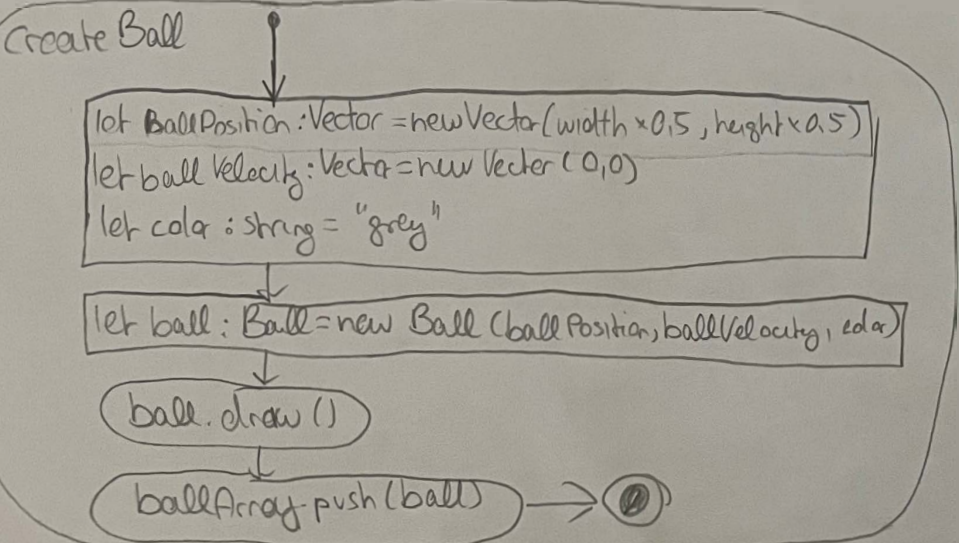 Create Ball
let BallPosition : Vector = new Vector(width × 0,5 , height × 0,5)
let ball Velocity : Vector = new Vector (0,0)
let color : string = "grey"
let ball : Ball = new Ball (ballPosition, ballVelocity, color)
ball.draw ()
ballArray.push (ball)